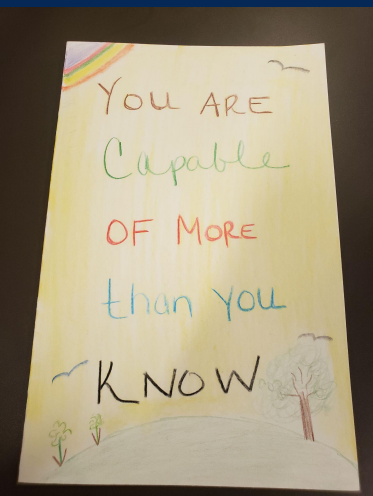 You ARE
Capable
OF MORE
than you
KNOW